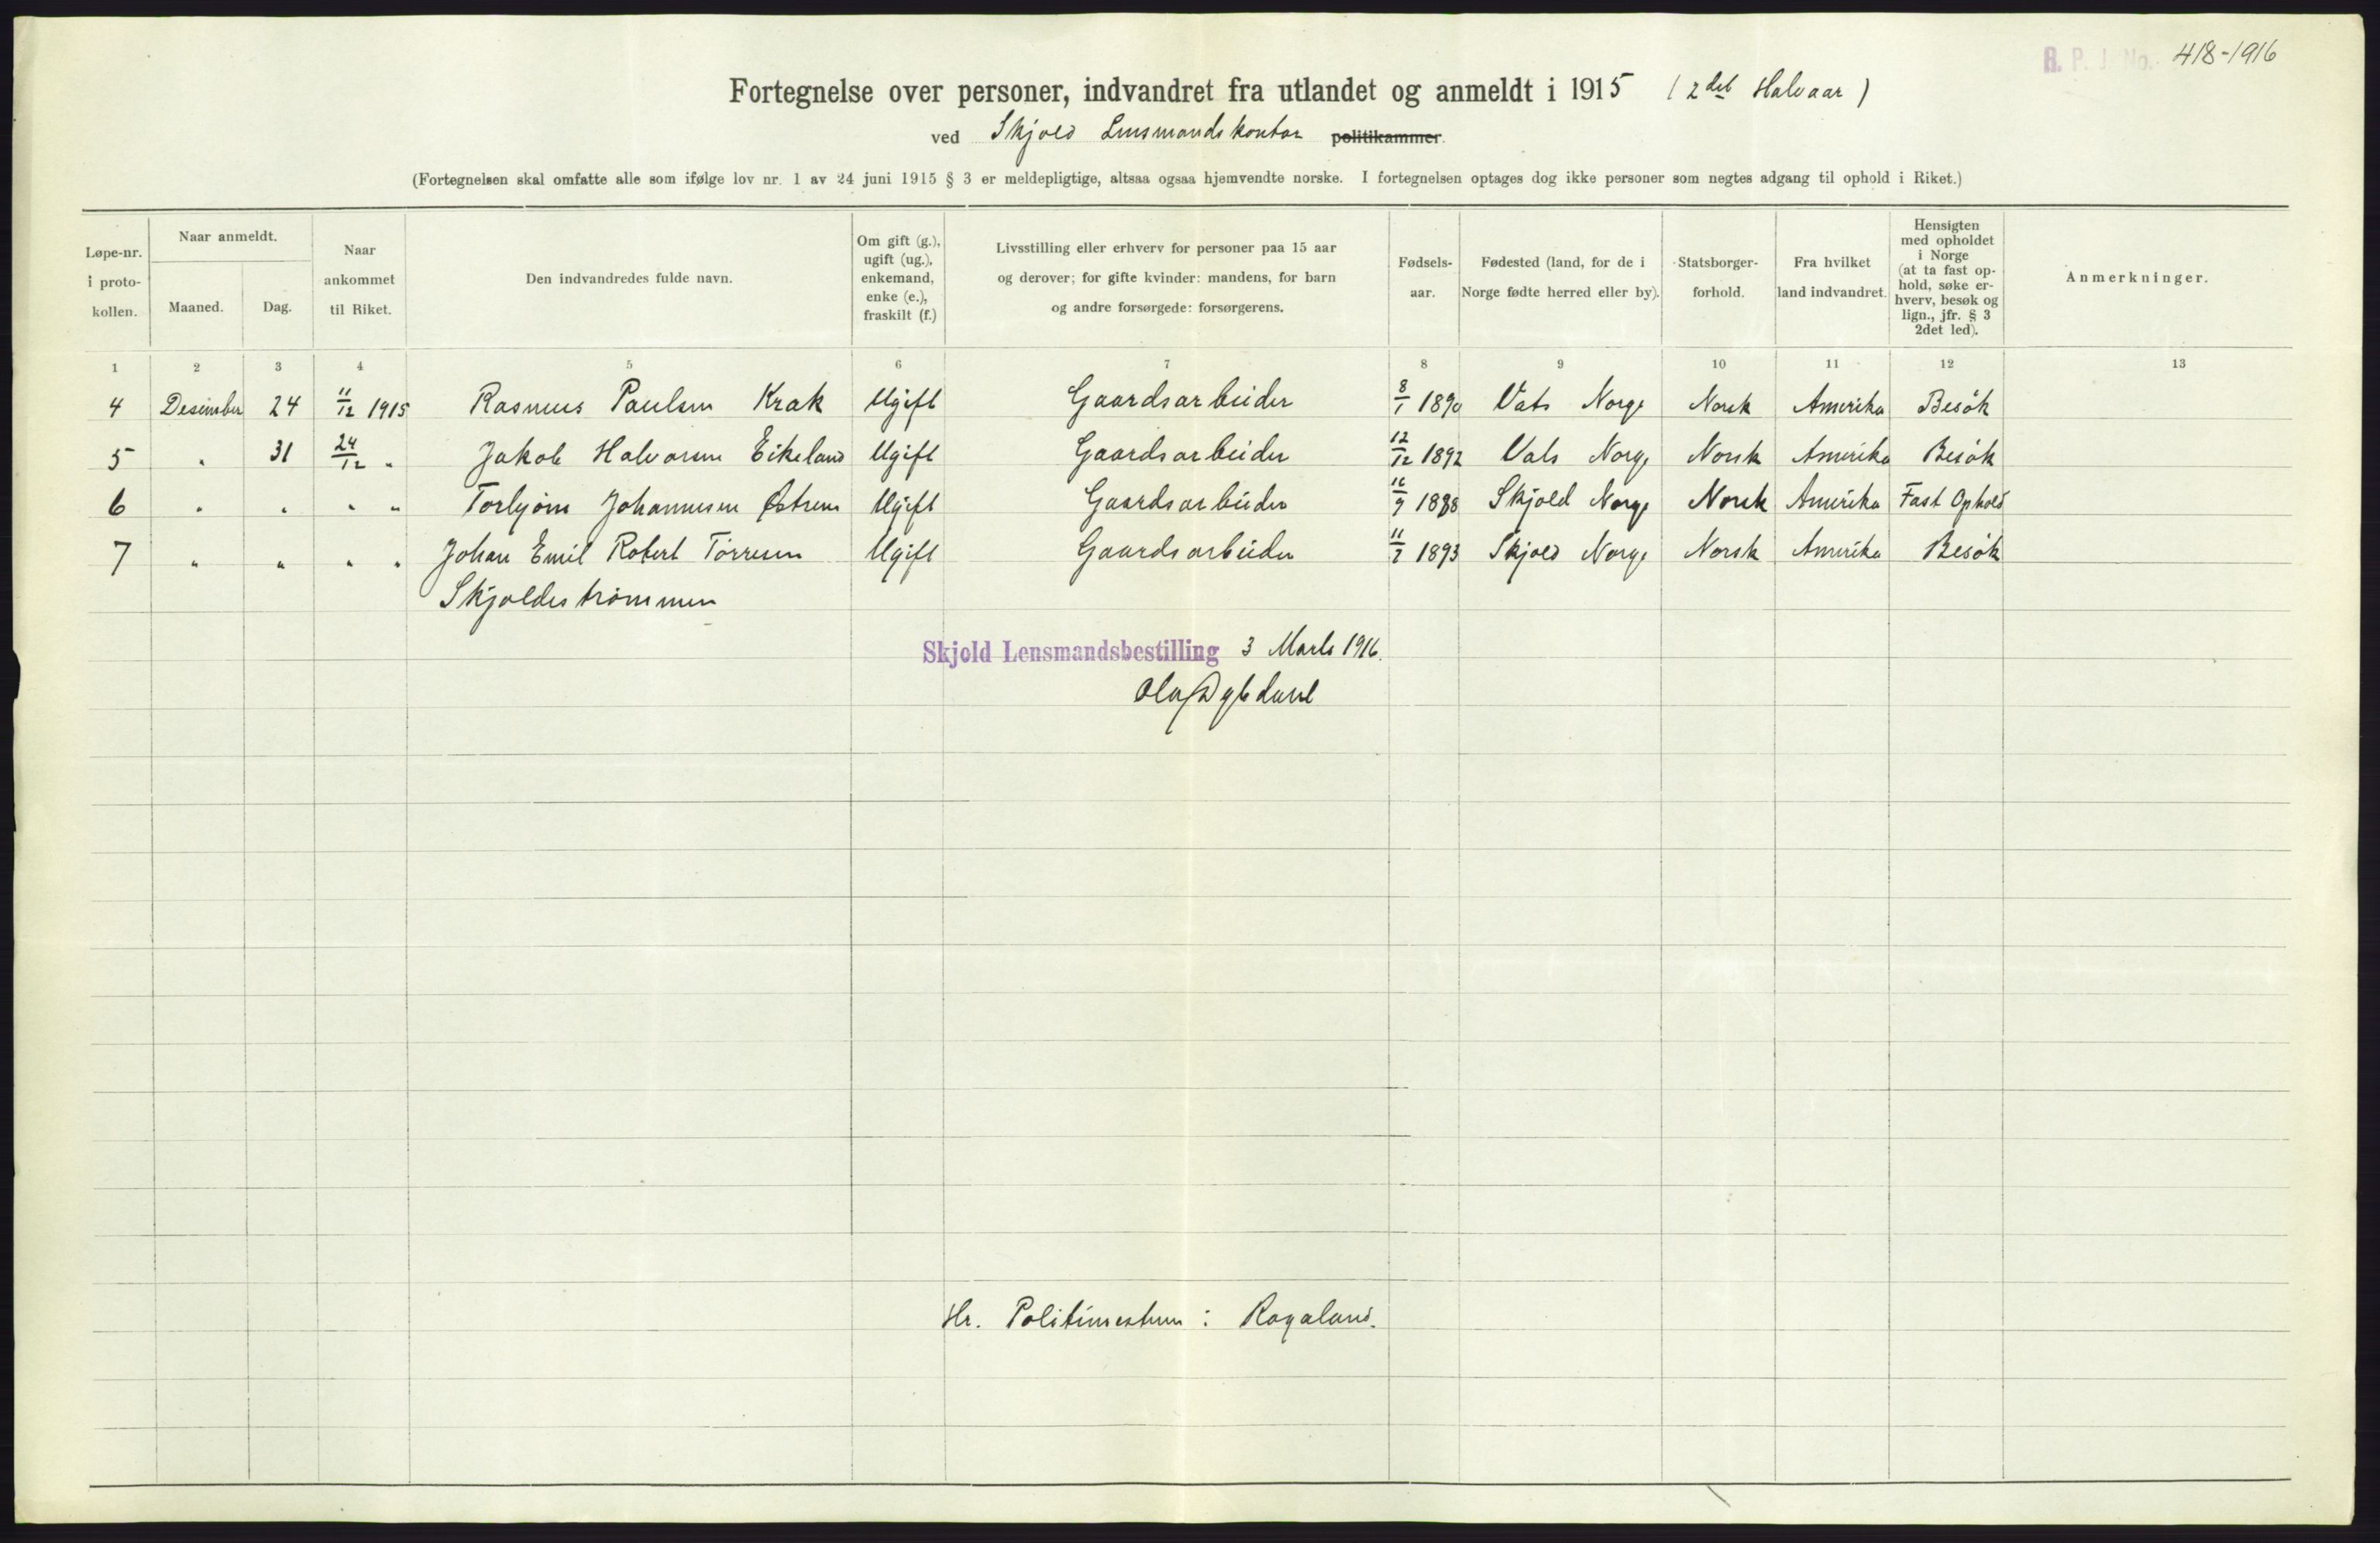 R. P. J. No. 418-1916
Fortegnelse over personer, indvandret fra utlandet og anmeldt i 1915 (2det Halvaar)
ved Skjold Lensmandskontor politikammer.
(Fortegnelsen skal omfatte alle som ifølge lov nr. 1 av 24 juni 1915 § 3 er meldepligtige, altsaa ogsaa hjemvendte norske. I fortegnelsen optages dog ikke personer som negtes adgang til ophold i Riket.)
Løpe-nr. i proto- kollen.
Naar anmeldt.
Maaned. Dag.
Naar ankommet til Riket.
Den indvandredes fulde navn.
Om gift (g.), ugift (ug.), enkemand, enke (e.), fraskilt (f.)
Livsstilling eller erhverv for personer paa 15 aar og derover; for gifte kvinder: mandens, for barn og andre forsørgede: forsørgerens.
Fødsels- aar.
Fødested (land, for de i Norge fødte herred eller by).
Statsborger- forhold.
Fra hvilket land indvandret.
Hensigten med opholdet i Norge (at ta fast op- hold, søke er- hverv, besøk og lign., jfr. § 3 2det led).
Anmerkninger.
1 2 3 4 5 6 7 8 9 10 11 12 13
4 Desember 24 11/12 1915 Rasmus Paulsen Krak Ugift Gaardsarbeider 8/1 1890 Vats Norge Norsk Amerika Besøk
5 " 31 24/12 " Jakob Halvorsen Eikeland Ugift Gaardsarbeider 12/12 1892 Vats Norge Norsk Amerika Besøk
6 " " " " Torbjørn Johannesen Østrem Ugift Gaardsarbeider 16/9 1888 Skjold Norge Norsk Amerika Fast Ophold
7 " " " " Johan Emil Robert Tørresen Ugift Gaardsarbeider 11/7 1893 Skjold Norge Norsk Amerika Besøk
Skjoldestrømmen
Skjold Lensmandsbestilling 3 Marts 1916.
Hr. Politimesteren i Rogaland.